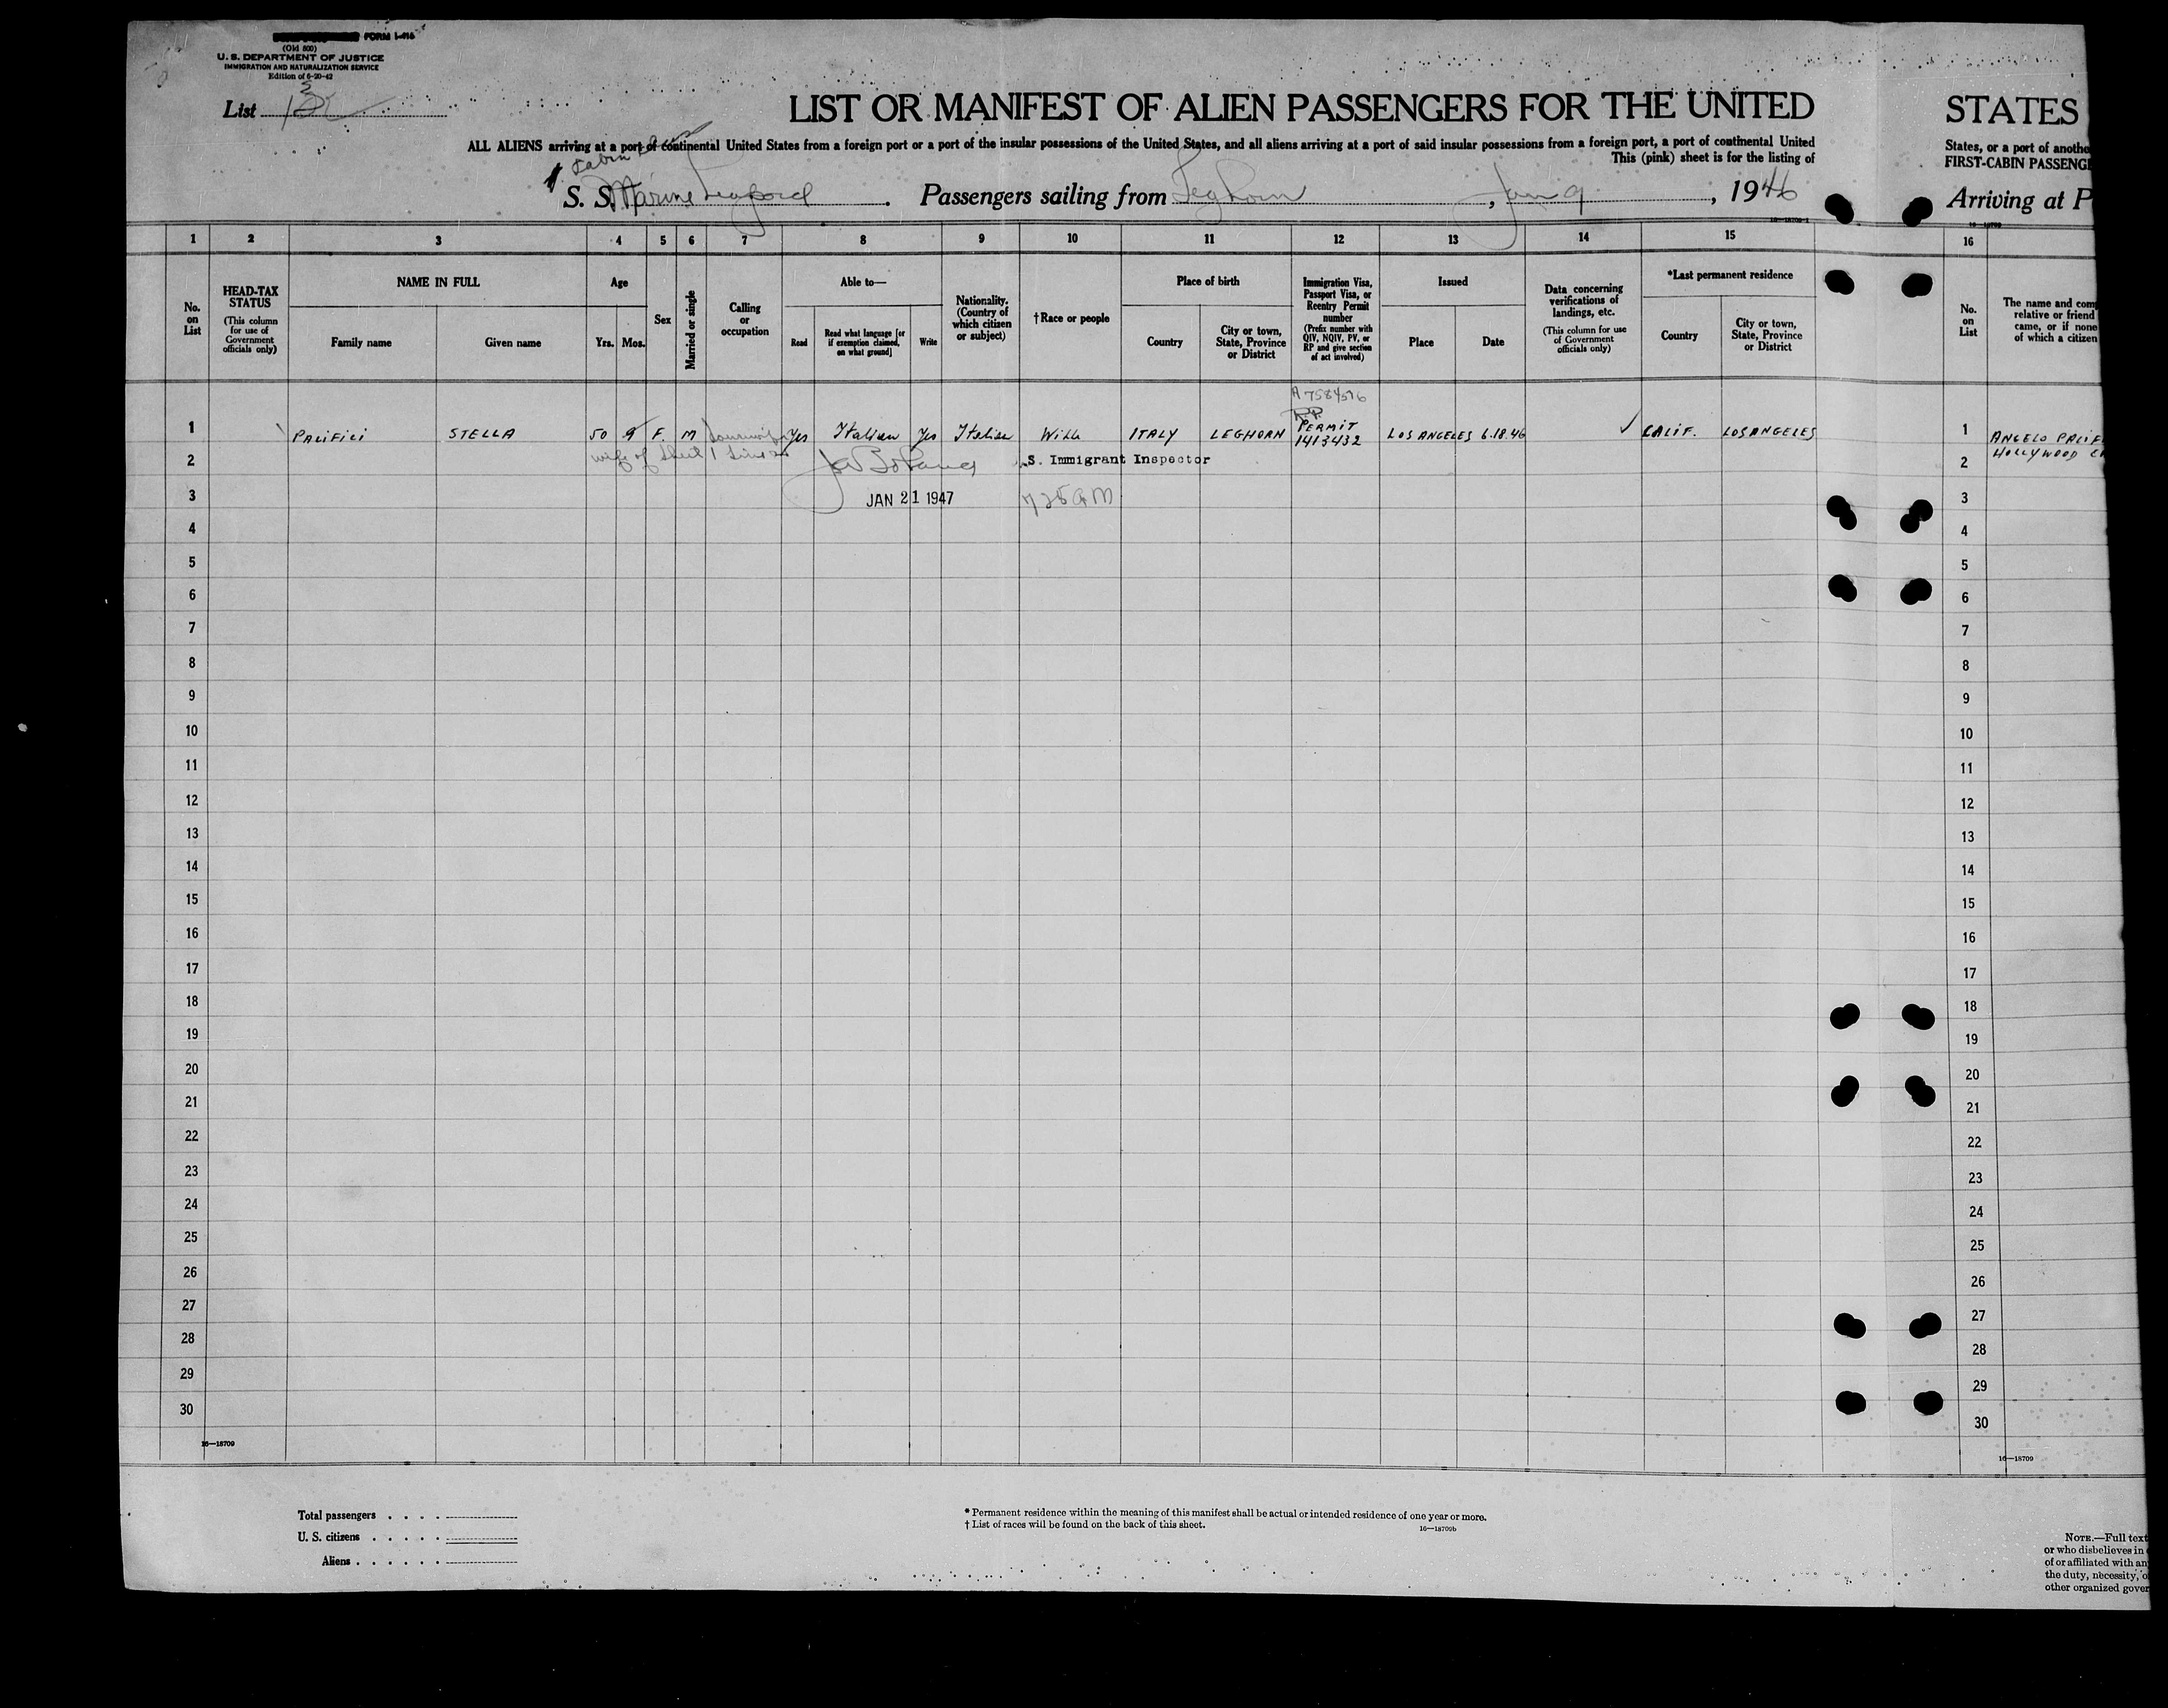 FORM I-415
(Old 500)
U. S. DEPARTMENT OF JUSTICE
IMMIGRATION AND NATURALIZATION SERVICE
Edition of 6-20-42
List
LIST OR MANIFEST OF ALIEN PASSENGERS FOR THE UNITED
STATES
ALL ALIENS arriving at a port of continental United States from a foreign port or a port of the insular possessions of the United States, and all aliens arriving at a port of said insular possessions from a foreign port, a port of continental United
States, or a port of anothe
This (pink) sheet is for the listing of
FIRST-CABIN PASSENG
Cabin
S. S. Marine Leopard. Passengers sailing from Leghorn, Jan 9, 1946
Arriving at P
16—18709-1
16—18709
1 2 3 4 5 6 7 8 9 10 11 12 13 14 15 16
No. on List
HEAD-TAX STATUS
(This column for use of Government officials only)
NAME IN FULL
Family name
Given name
Age
Yrs. Mos.
Sex
Married or single
Calling or occupation
Able to—
Read
Read what language [or if exemption claimed, on what ground]
Write
Nationality. (Country of which citizen or subject)
†Race or people
Place of birth
Country
City or town, State, Province or District
Immigration Visa, Passport Visa, or Reentry Permit number
(Prefix number with QIV, NQIV, PV, or RP and give section of act involved)
Issued
Place
Date
Data concerning verifications of landings, etc.
(This column for use of Government officials only)
*Last permanent residence
Country
City or town, State, Province or District
No. on List
The name and com
relative or friend
came, or if none
of which a citizen
A 7584576
R.P.
PERMIT
1413432
1 PACIFICI STELLA 50 9 F. M Yes Italian Yes Italian ITALY LEGHORN LOS ANGELES 6.18.46 ✓ CALIF. LOS ANGELES 1 ANGELO PACIF
HOLLYWOOD
wife of Sheet 1 Line
2 S. Immigrant Inspector 2
3 JAN 21 1947 725 AM 3
4 4
5 5
6 6
7 7
8 8
9 9
10 10
11 11
12 12
13 13
14 14
15 15
16 16
17 17
18 18
19 19
20 20
21 21
22 22
23 23
24 24
25 25
26 26
27 27
28 28
29 29
30 30
16—18709
16—18709
Total passengers . . . .
U. S. citizens . . . . .
Aliens . . . . . .
* Permanent residence within the meaning of this manifest shall be actual or intended residence of one year or more.
† List of races will be found on the back of this sheet.
16—18709b
NOTE.—Full text
or who disbelieves in
of or affiliated with an
the duty, necessity, o
other organized gover